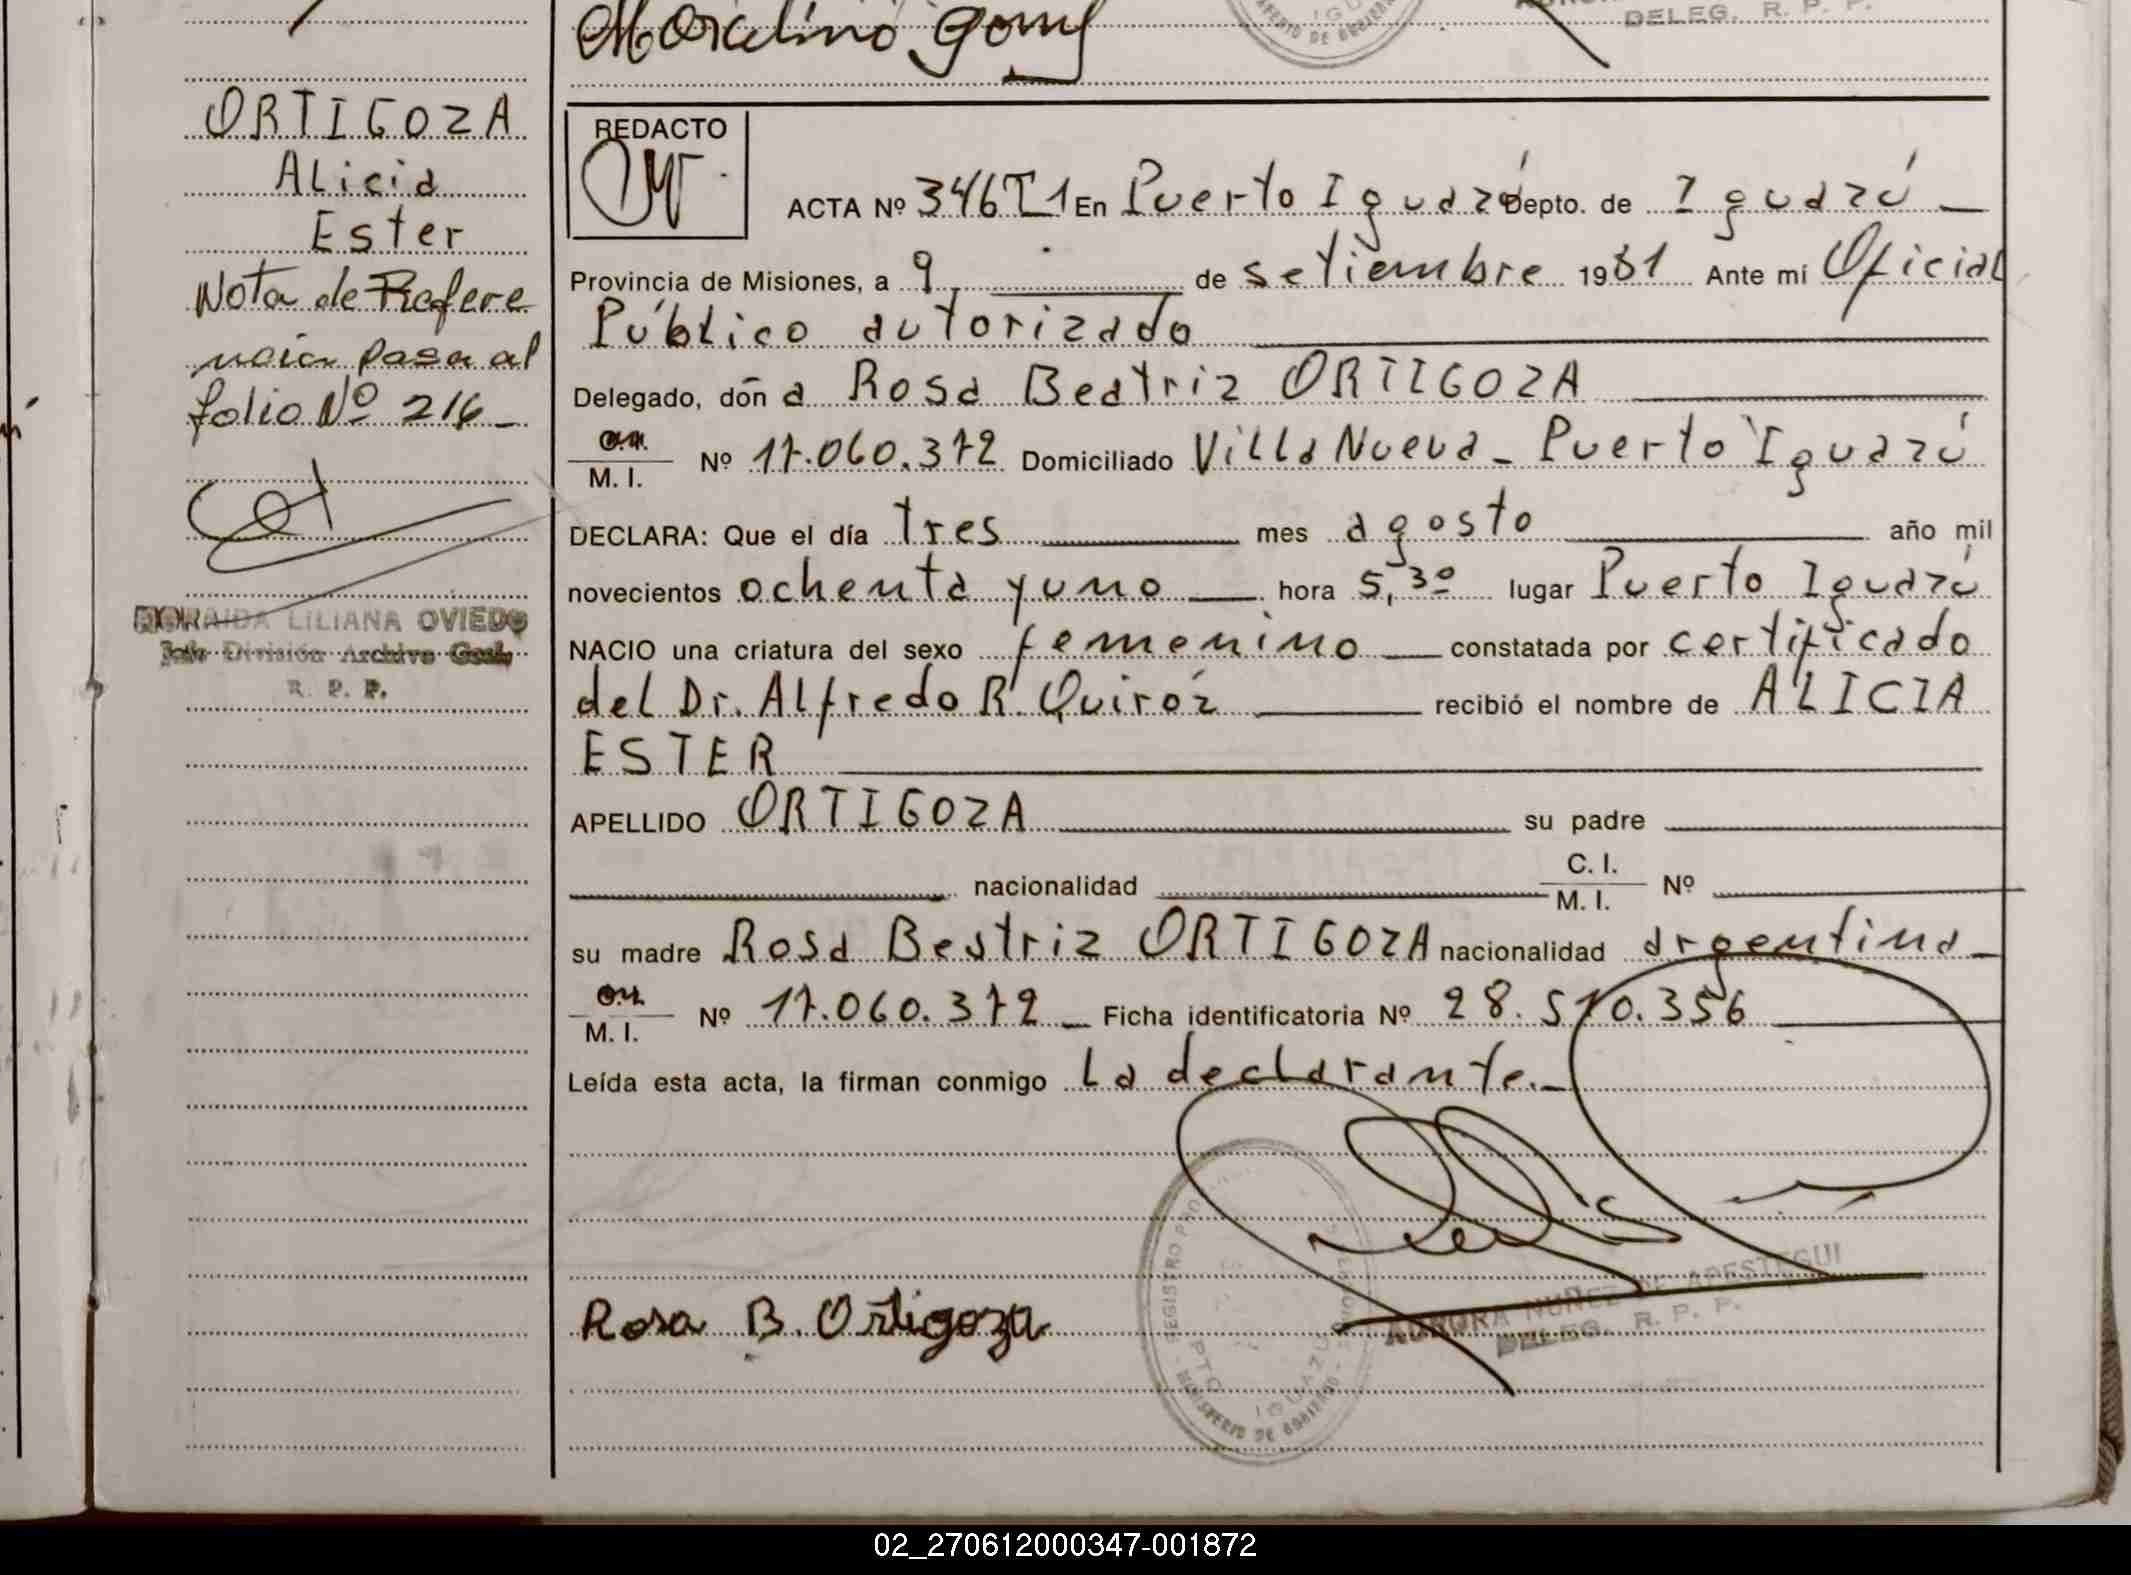 Marcelino Gomez
DELEG. R. P. P.
ORTIGOZA
Alicia
Ester
Nota de Refere
ncia pasa al
folio Nº 216
LILIANA OVIEDO
Jefe División Archivo Gral.
R. P. P.
REDACTO
ACTA Nº 346T1 En Puerto Iguazú Depto. de Iguazú
Provincia de Misiones, a 9 de setiembre 1981 Ante mí Oficial
Público autorizado
Delegado, doña Rosa Beatriz ORTIGOZA
M. I. Nº 17.060.372 Domiciliado Villa Nueva - Puerto Iguazú
DECLARA: Que el día tres mes agosto año mil
novecientos ochenta y uno hora 5,30 lugar Puerto Iguazú
NACIO una criatura del sexo femenino constatada por certificado
del Dr. Alfredo R. Quiróz recibió el nombre de ALICIA
ESTER
APELLIDO ORTIGOZA su padre
nacionalidad C. I. M. I. Nº
su madre Rosa Beatriz ORTIGOZA nacionalidad argentina
M. I. Nº 17.060.372 Ficha identificatoria Nº 28.510.356
Leída esta acta, la firman conmigo La declarante.
Rosa B. Ortigoza
REGISTRO PRO
PTO IGUAZU
MINISTERIO DE GOBIERNO
AURORA NUÑEZ DE APESTEGUI
DELEG. R. P. P.
02_270612000347-001872